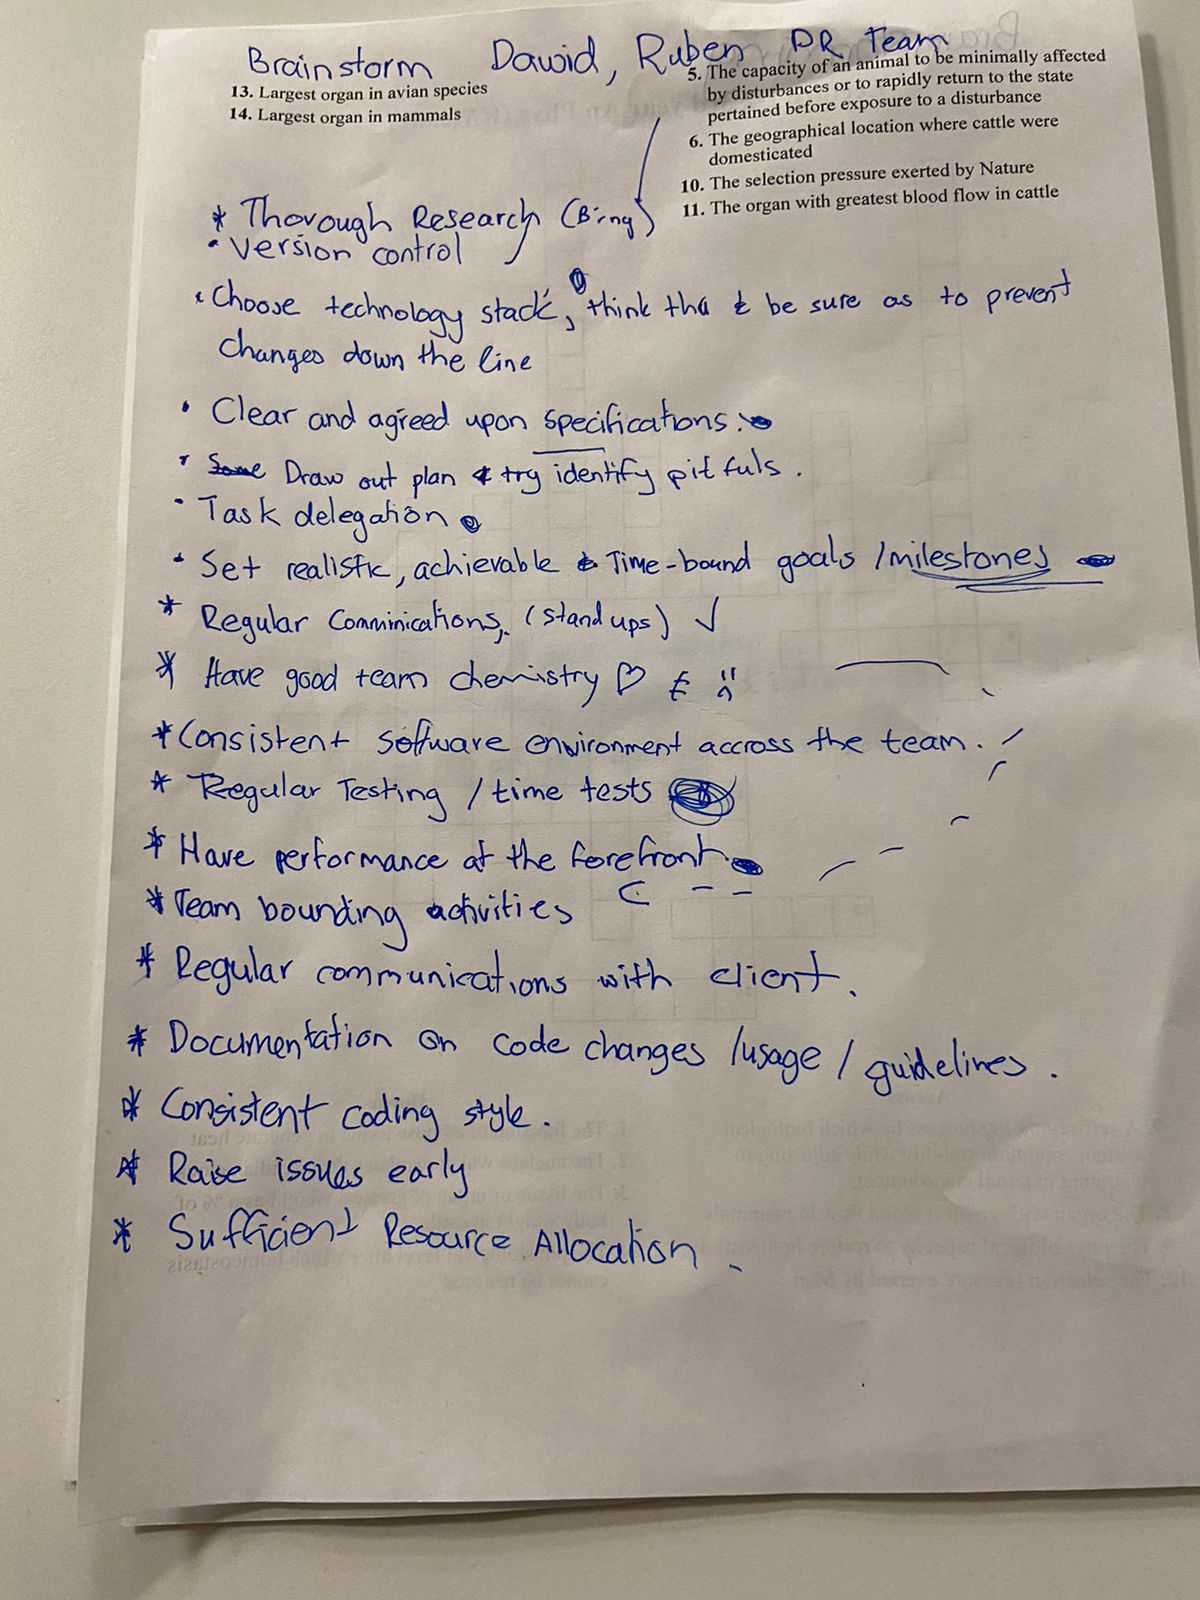 Brainstorm Dawid, Ruben DR Team
13. Largest organ in avian species
14. Largest organ in mammals
5. The capacity of an animal to be minimally affected
by disturbances or to rapidly return to the state
pertained before exposure to a disturbance
6. The geographical location where cattle were
domesticated
10. The selection pressure exerted by Nature
11. The organ with greatest blood flow in cattle
* Thorough Research (Bing)
• Version control
• Choose technology stack, think & be sure as to prevent
changes down the line
• Clear and agreed upon specifications.
• Some Draw out plan & try identify pit fuls.
• Task delegation
• Set realistic, achievable & Time-bound goals /milestones
* Regular Comminications, (stand ups) ✓
* Have good team chemistry ♡ &
* Consistent software environment accross the team.
* Regular Testing / time tests
* Have performance at the forefront.
* Team bounding activities
* Regular communications with client.
* Documentation on code changes /usage / guidelines.
* Consistent coding style.
* Raise issues early
* Sufficient Resource Allocation.